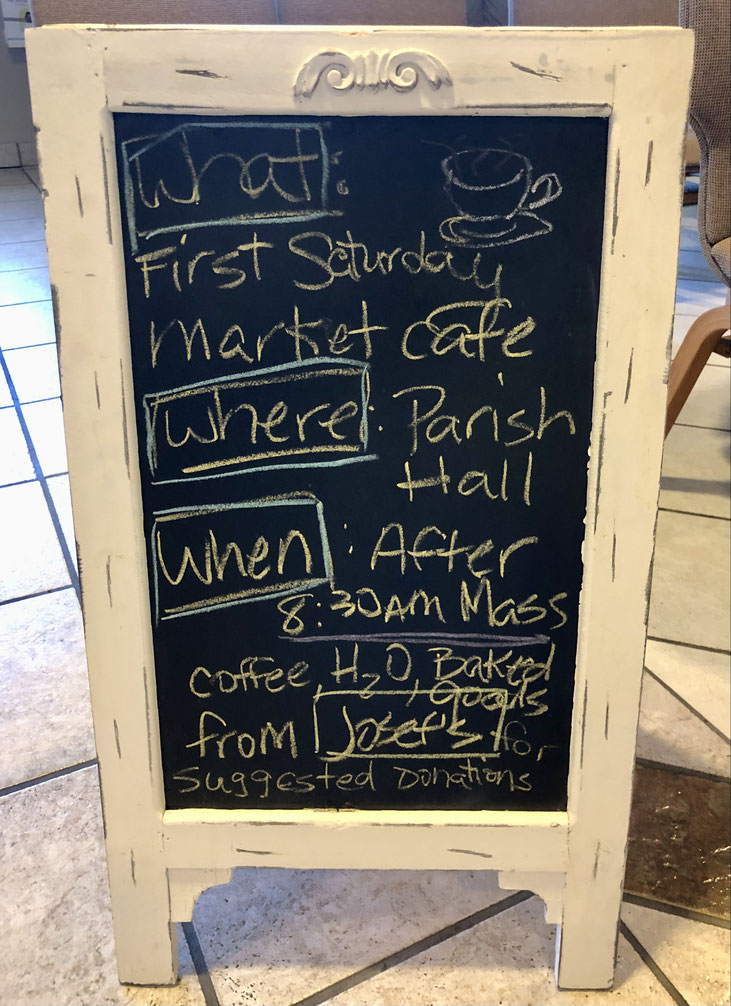 What:
First Saturday
Market cafe
Where: Parish
Hall
When: After
8:30AM Mass
coffee, H2O, Baked
Goods
from Josef's for
Suggested Donations